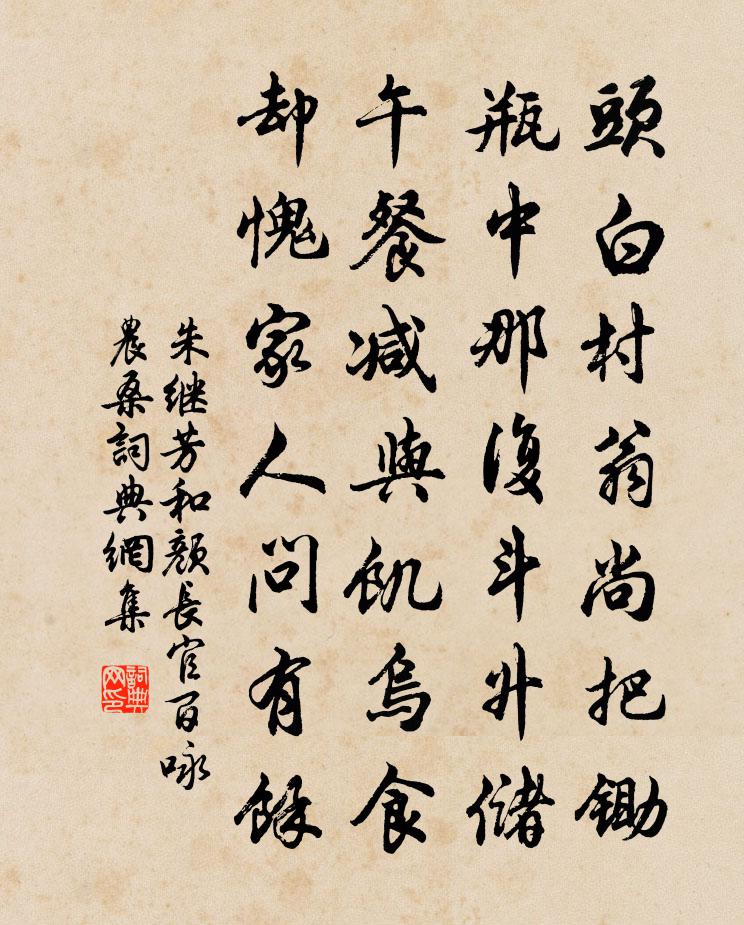 頭白村翁尚把鋤
瓶中那復斗升儲
午餐減與飢烏食
却愧家人問有餘
朱继芳和顏長官百咏
農桑詞典網集
詞典网印